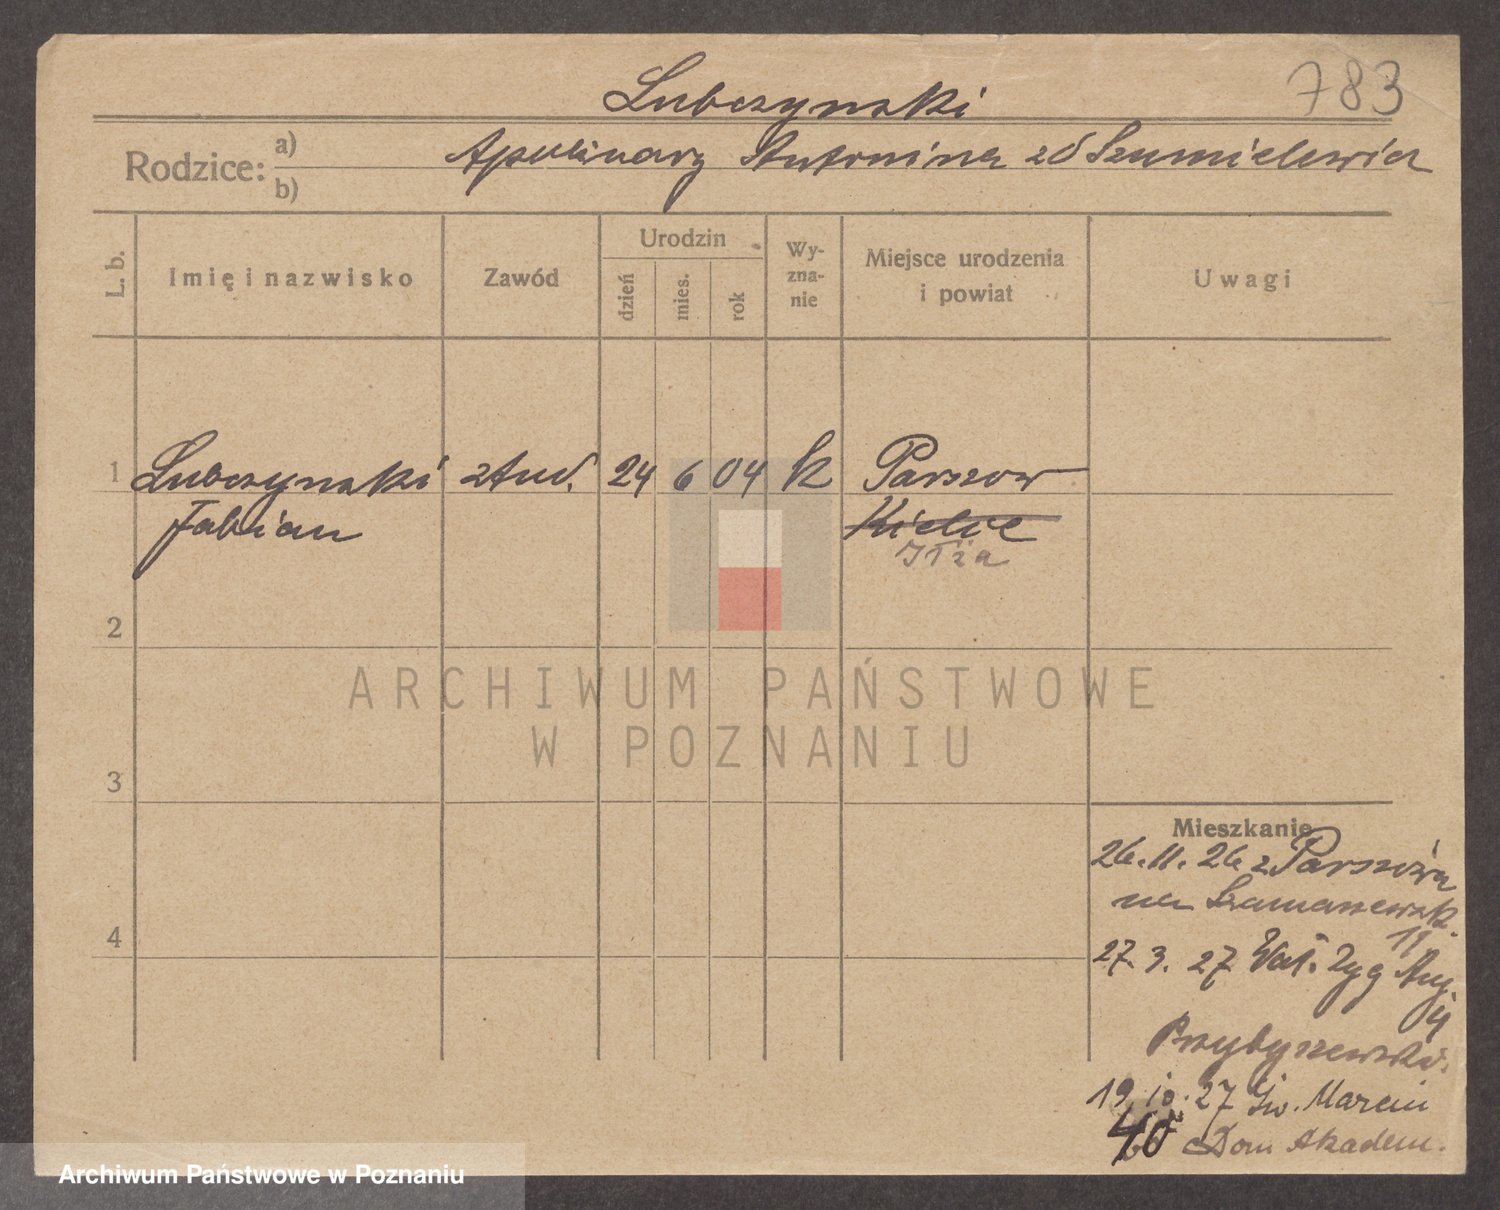 783
Lubczynski
Rodzice: a) b)
Apolinary Antonina zd Szumielewicz
L. b.
Imię i nazwisko
Zawód
Urodzin
dzień
mies.
rok
Wy-
zna-
nie
Miejsce urodzenia
i powiat
Uwagi
1 Lubczynski stud. 24 6 04 k Parszow
Fabian Kielce
Iłża
2
ARCHIWUM PAŃSTWOWE
W POZNANIU
3
Mieszkanie
26.11.26 z Parszowa
na
4
11
27.3.27 Zyg Aug.
4
Przybyszewski.
19.10.27 Św. Marcin
40 Dom Akadem.
Archiwum Państwowe w Poznaniu